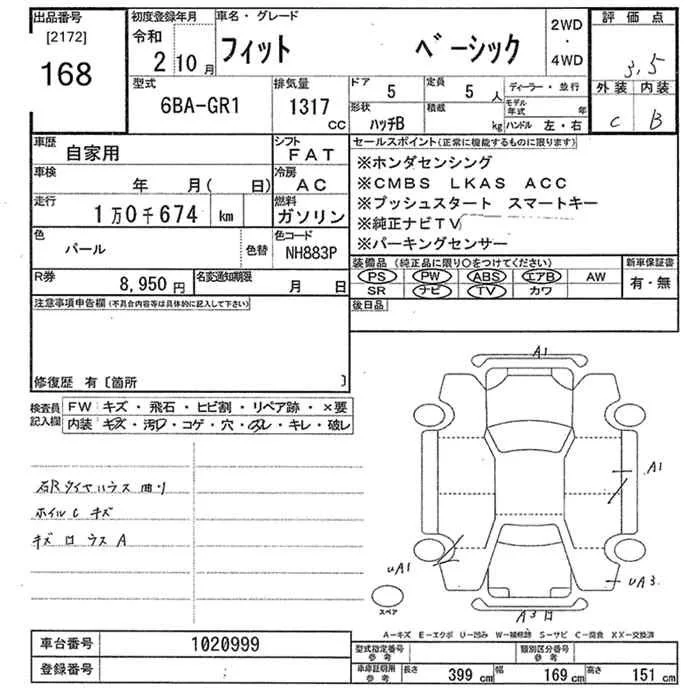 出品番号
[2172]
168
初度登録年月
令和
2 10月
車名・グレード
フィット ベーシック
2WD
・
4WD
評価点
3.5
外装 内装
C B
型式
6BA-GR1
排気量
1317
CC
ドア
5
定員
5 人
ディーラー・並行
形状
ハッチB
積載
kg
モデル年式 年
ハンドル 左・右
車歴
自家用
シフト
FAT
車検
年 月( 日)
冷房
AC
走行
1万0千674 km
燃料
ガソリン
色
パール
色替
色コード
NH883P
R券
8,950円
名変通知期限
月 日
セールスポイント(正常に機能するものに限ります)
※ホンダセンシング
※CMBS LKAS ACC
※プッシュスタート スマートキー
※純正ナビTV
※パーキングセンサー
装備品 (純正品に限り○をつけてください)
PS PW ABS エアB AW
SR ナビ TV カワ
新車保証書
有・無
後日品
注意事項申告欄(不具合内容等は具体的に記入して下さい)
修復歴 有〔箇所 〕
検査員
記入欄
FW キズ・飛石・ヒビ割・リペア跡・×要
内装 キズ・汚レ・コゲ・穴・スレ・キレ・破レ
右Rタイヤハウス 曲り
ホイルC キズ
キズ ロ ウス A
A1
A1
uA1
uA3
A3
スペア
A－キズ E－エクボ U－凹み W－補修跡 S－サビ C－腐食 XX－交換済
車台番号
1020999
登録番号
型式指定番号
参考
類別区分番号
参考
車庫証明用
参考
長さ 399 cm 幅 169 cm 高さ 151 cm